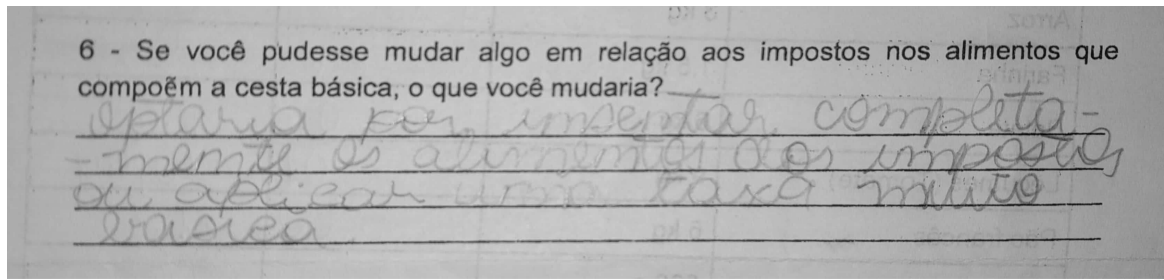 6 - Se você pudesse mudar algo em relação aos impostos nos alimentos que
compõem a cesta básica, o que você mudaria?
optaria por insentar completa-
-mente os alimentos dos impostos
ou aplicar uma taxa muito
basica